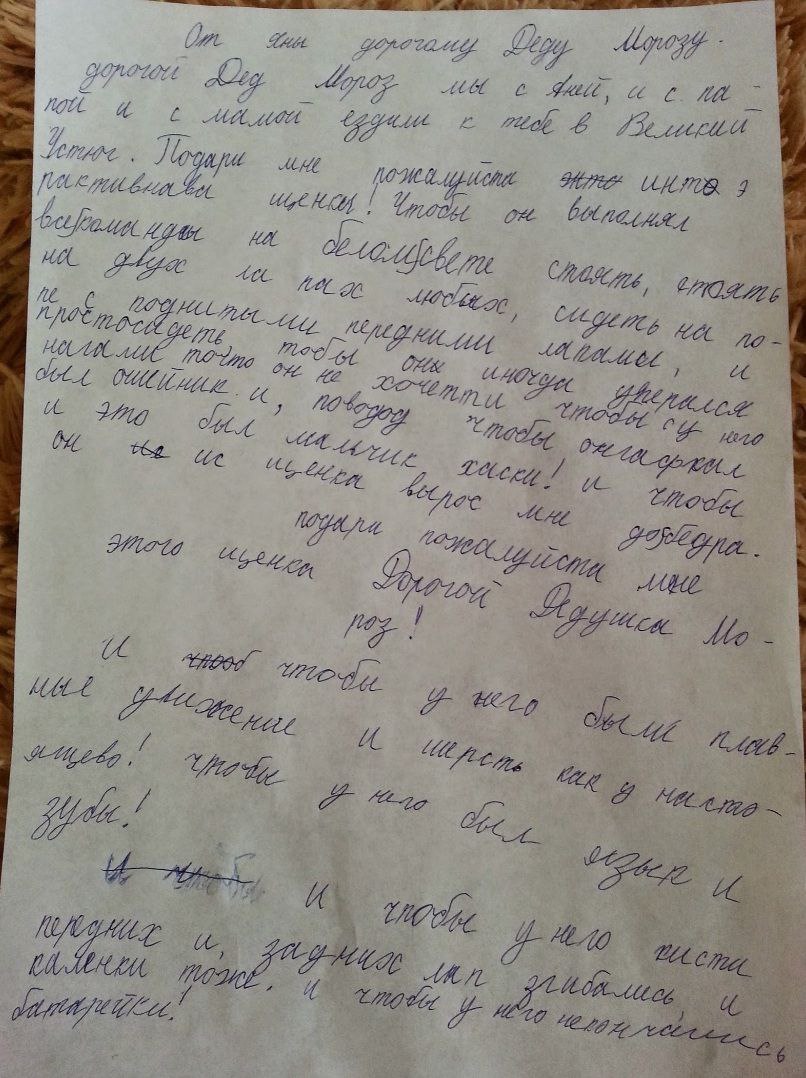 От яны дорогому Деду Морозу.
дорогой Дед Мороз мы с Аней, и с па-
пой и с мамой ездили к тебе в Великий
Устюг. Подари мне пожалуйста инто э
рактивнава щенка! Чтобы он выполнял
всекоманды на беломсвете стоять, стоять
на двух ла пах любых, сидеть на по-
пе с поднитыми передними лапами, и
простосадеть, тобы он иногда упёрался
нагами точто он не хочетти чтобы у него
был ошейник и, поводод чтобы онгафкал
и это был мальчик хаски! и чтобы
он ис щенка вырос мне добедра.
подари пожалуйста мне
этого щенка Дорогой Дедушка Мо-
роз!
И чтобы у него были плав-
ные движение и шерсть как у насто-
ящево! чтобы у него был язык и
зубы!
И чтобы у него кисти
передних и задних лап згибались и
каленки тоже. и чтобы у него непончались
батарейки!